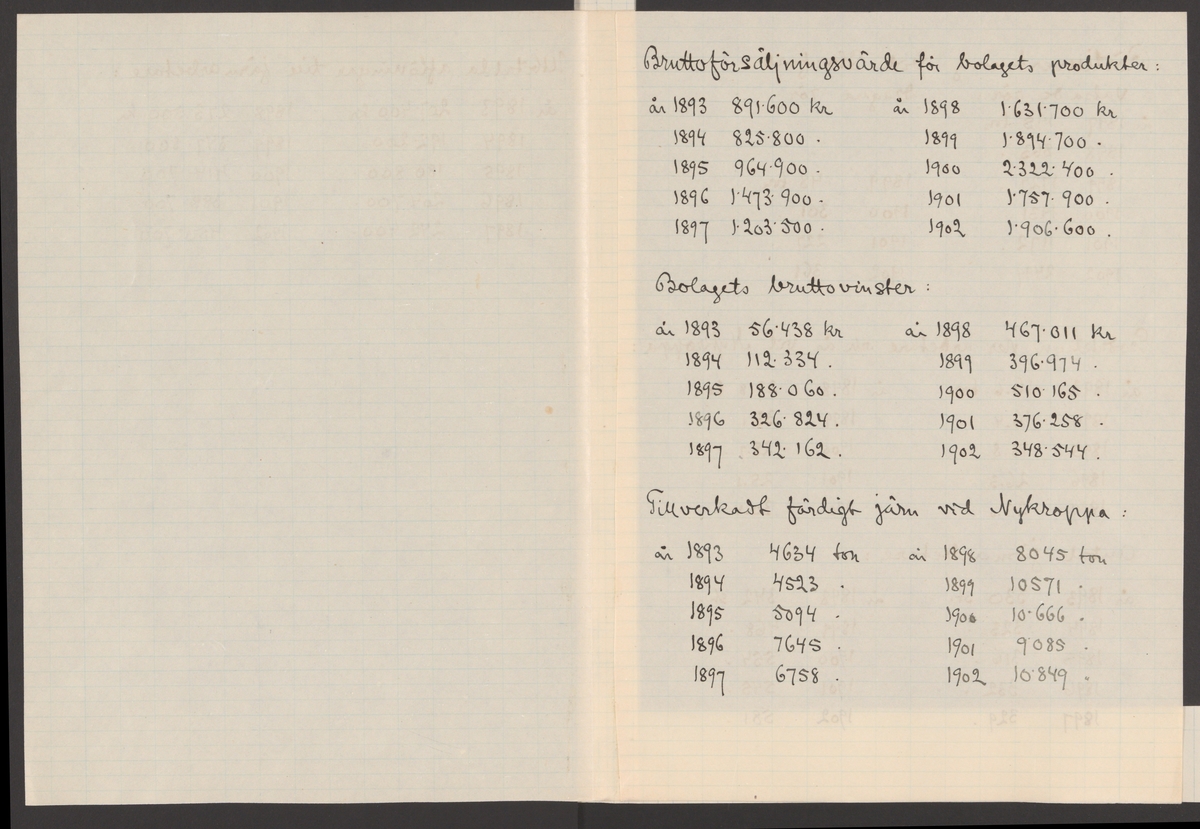 Bruttoförsäljningsvärde för bolagets produkter:
år 1893 891.600 kr år 1898 1.631.700 kr
1894 825.800 . 1899 1.894.700 .
1895 964.900 . 1900 2.322.400 .
1896 1.473.900 . 1901 1.757.900 .
1897 1.203.500 . 1902 1.906.600 .
Bolagets bruttovinster:
år 1893 56.438 kr år 1898 467.011 kr
1894 112.334 . 1899 396.974 .
1895 188.060 . 1900 510.165 .
1896 326.824 . 1901 376.258 .
1897 342.162 . 1902 348.544 .
Tillverkadt färdigt järn vid Nykroppa:
år 1893 4634 ton år 1898 8045 ton
1894 4523 . 1899 10571 .
1895 5094 . 1900 10.666 .
1896 7645 . 1901 9085 .
1897 6758 . 1902 10.849 .